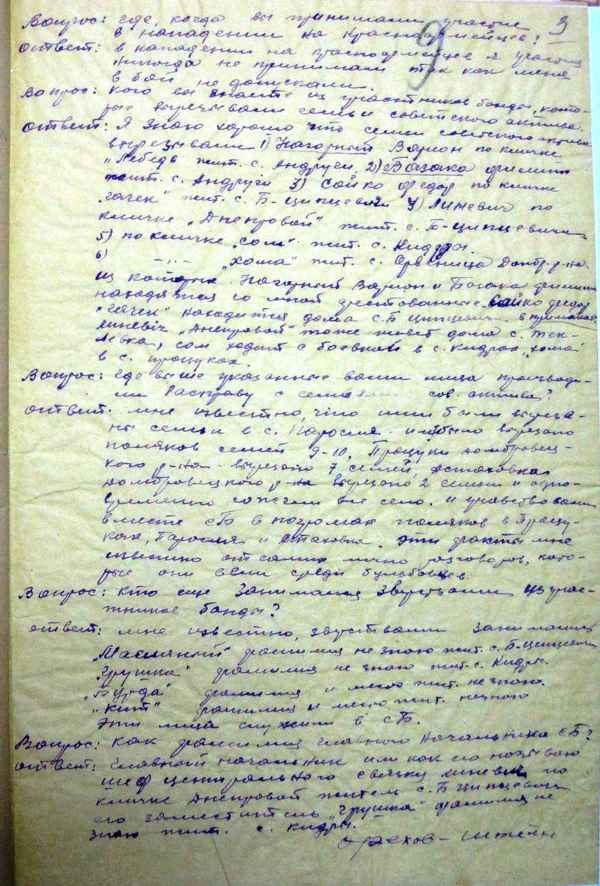 3
9
Вопрос: где, когда вы принимали участие
в нападении на красноармейцев?
Ответ: в нападении на красноармейцев я участия
никогда не принимал так как меня
в бой не допускали.
Вопрос: Кого вы знаете из участников банды, кото-
рые вырезывали семьи советского актива.
Ответ: Я знаю хорошо что семьи советского актива
вырезывали 1) Нагорный Варион по кличке
"Лебедь" жит. с. Андруги, 2) Базака
жит. с. Андруги 3) Сойко Федор по кличке
"Гачек" жит. с. Б-Цепцевичи 4) Линевич по
кличке "Днепровой" жит. с. Б-Цепцевичи
5) по кличке "Сом" жит. с. Кидры.
6) -"- "Хома" жит. с. Домбр. р-на
из которых Нагорный Варион и Базака
находятся со мной арестованные Сойко Федор
"Гачек" находится дома с. Б Цепцевичи
Линевич "Днепровой" тоже живет дома с.
сом ходит с боевкой в с. Кидрах "Хома"
в с. Процуках.
Вопрос: Где выше указанные вами лица производи-
ли расправу с семьями сов. актива?
Ответ: мне известно, что ими были выреза-
ны семьи в с. Паросля и было вырезано
поляков семей 9-10, Процуки Домбровец-
кого р-на вырезано 7 семей,
Домбровецкого р-на вырезано 2 семьи и одно-
временно сожгли все село. и участвовали
вместе СБ в погромах поляков в Процу-
ках, Паросля и эти факты мне
известно от самих лично разговоров, кото-
рые они вели среди бульбовцев
Вопрос: Кто еще занимался зверствами из учас-
тников банды?
Ответ: мне известно, зверствами занимались
"Масляный" фамилия не знаю жит. с. Б-Цепцевичи
"Грушка" фамилия не знаю жит. с. Кидры.
фамилия и место жит. не знаю.
"Кит" фамилия и место жит. не знаю
Эти лица служили в СБ.
Вопрос: Как фамилия главного начальника СБ?
Ответ: главный начальник или как его называю
шеф центрального связку Линевич по
кличке Днепровой житель с. Б Цепцевичи
его заместитель "Грушка" фамилия не
знаю жит. с. Кидры.